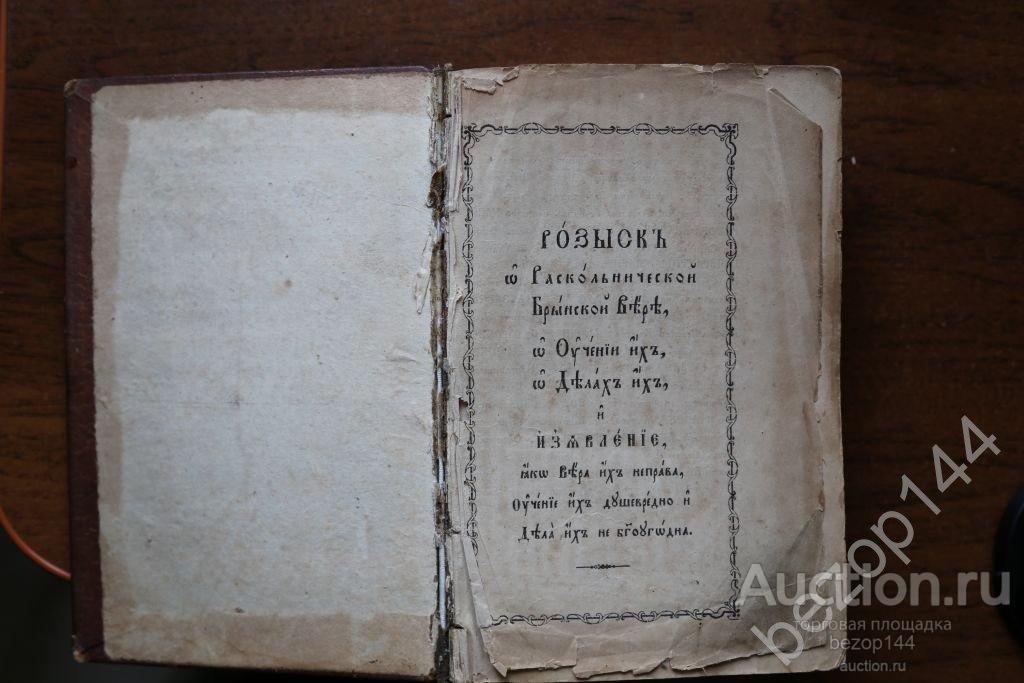 РО́ЗЫСКЪ
ѽ Раско́льнической
Бры́нской Вѣ́рѣ,
ѽ Оу҆че́нїи и҆́хъ,
ѽ Дѣла́хъ и҆́хъ,
и҆
И҆З̾ѦВЛЕ́НЇЕ,
ꙗ҆́кѡ вѣ́ра и҆́хъ непра́ва,
Оу҆че́нїе и҆́хъ душевре́дно и҆
Дѣла̀ и҆́хъ не бг҃оуго́дна.
Auction.ru
торговая площадка
bezop144
auction.ru
bezop144